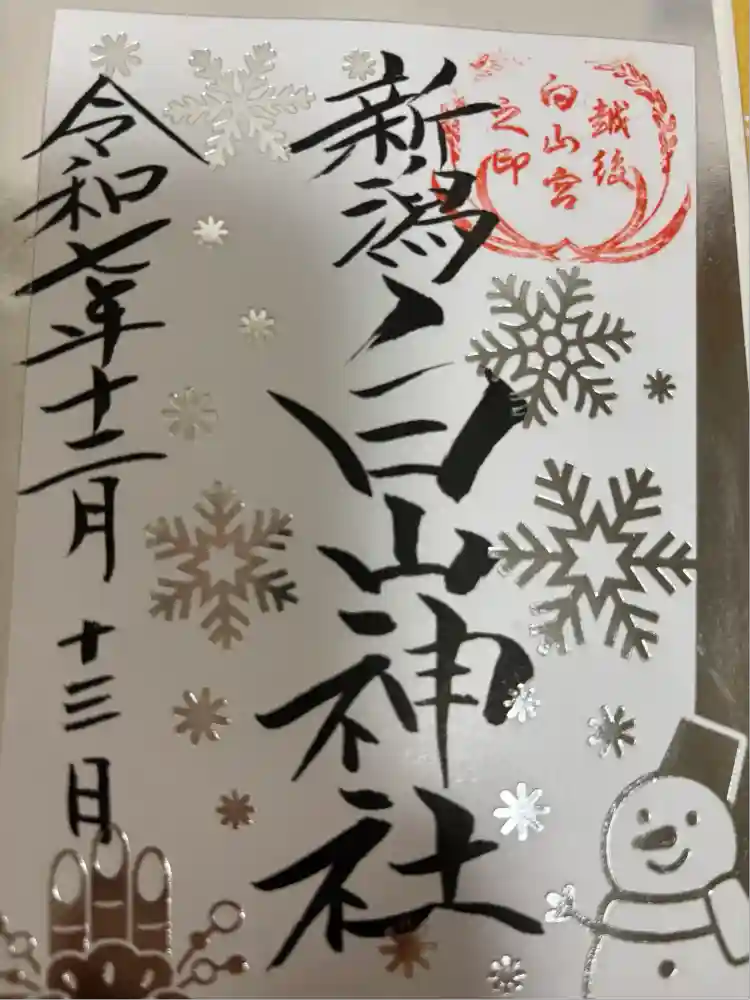 越後
白山宮
之印
新潟白山神社
令和七年十二月十三日